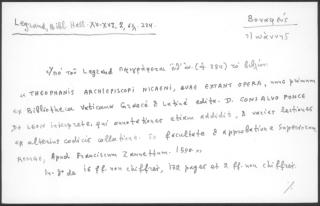 Legrand, Bibl. Hell. XV-XVI, 2, σελ. 224.
Βουνμρός
Ἰωάννης
Ὑπὸ τοῦ Legrand περιγράφεται (ἀρ. 224) τὸ βιβλίον
« THEOPHANIS ARCHIEPISCOPI NICAENI, QUAE EXTANT OPERA, nunc primum
ex Bibliotheca Vaticana Graecè & Latinè edita. D. CONSALVO PONCE
DE LEON interprete, qui annotationes etiam addidit, & varias lectiones
ex alterius codicis collatione. Ex facultate & Approbatione Superiorum
ROMAE, Apud Franciscum Zannettum. 1590. »
In 8° de 16 ff. non chiffrés, 172 pages et 2 ff. non chiffrés.